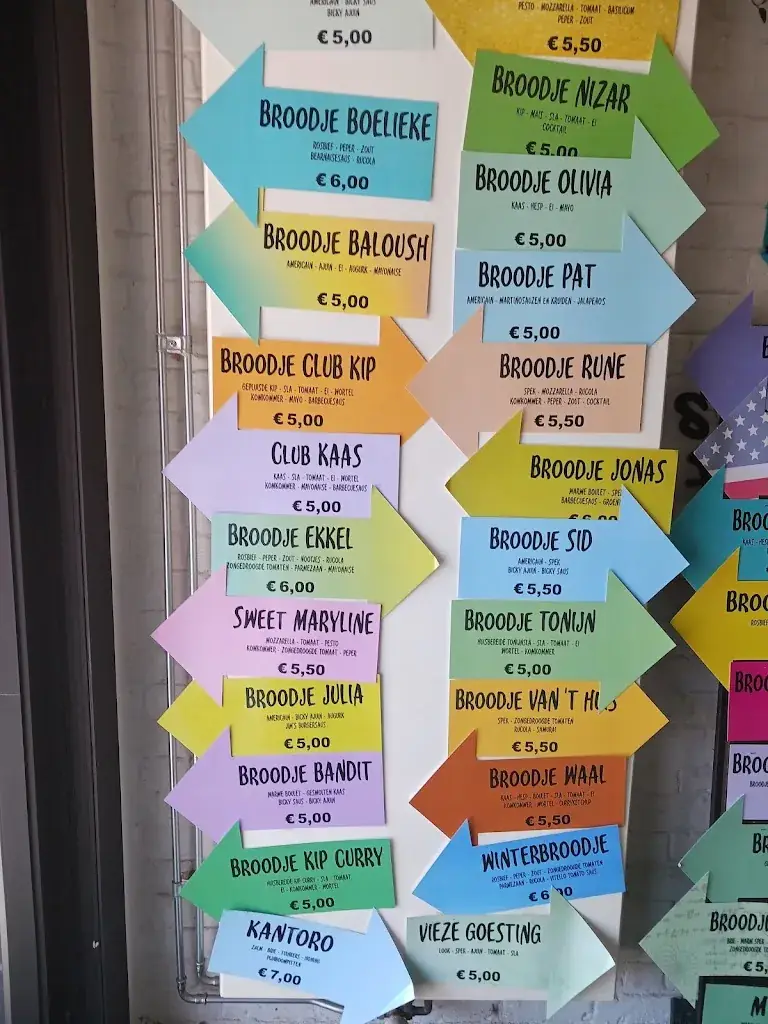 AMERICAIN - BICKY SAUS
BICKY AJUIN
€ 5,00
BROODJE BOELIEKE
ROSBIEF - PEPER - ZOUT
BEARNAISESAUS - RUCOLA
€ 6,00
BROODJE BALOUSH
AMERICAIN - AJUIN - EI - AUGURK - MAYONAISE
€ 5,00
BROODJE CLUB KIP
GEPLUKSDE KIP - SLA - TOMAAT - EI - WORTEL
KOMKOMMER - MAYO - BARBECUESAUS
€ 5,00
CLUB KAAS
KAAS - SLA - TOMAAT - EI - WORTEL
KOMKOMMER - MAYONAISE - BARBECUESAUS
€ 5,00
BROODJE EKKEL
ROSBIEF - PEPER - ZOUT - NOOTJES - RUCOLA
ZONGEDROOGDE TOMATEN - PARMEZAAN - MAYONAISE
€ 6,00
SWEET MARYLINE
MOZZARELLA - TOMAAT - PESTO
KOMKOMMER - ZONGEDROOGDE TOMAAT - PEPER
€ 5,50
BROODJE JULIA
AMERICAIN - BICKY AJUIN - AUGURK
BURGERSAUS
€ 5,00
BROODJE BANDIT
WARME BOULET - GESMOLTEN KAAS
BICKY SAUS - BICKY AJUIN
€ 5,00
BROODJE KIP CURRY
HUISBEREIDE KIP CURRY - SLA - TOMAAT
EI - KOMKOMMER - WORTEL
€ 5,00
KANTORO
ZALM - BRIE - HONING
PIJNBOOMPITTEN
€ 7,00
PESTO - MOZZARELLA - TOMAAT - BASILICUM
PEPER - ZOUT
€ 5,50
BROODJE NIZAR
KIP - MAIS - SLA - TOMAAT - EI
COCKTAIL
€ 5,00
BROODJE OLIVIA
KAAS - HESP - EI - MAYO
€ 5,00
BROODJE PAT
AMERICAIN - MARTINOSAUZEN EN KRUIDEN - JALAPENOS
€ 5,00
BROODJE RUNE
SPEK - MOZZARELLA - RUCOLA
KOMKOMMER - PEPER - ZOUT - COCKTAIL
€ 5,50
BROODJE JONAS
WARME BOULET - SPE
BARBECUESAUS - GROEN
€ 6,00
BROODJE SID
AMERICAIN - SPEK
BICKY AJUIN - BICKY SAUS
€ 5,50
BROODJE TONIJN
HUISBEREIDE TONIJNSLA - SLA - TOMAAT - EI
WORTEL - KOMKOMMER
€ 5,00
BROODJE VAN 'T HUIS
SPEK - ZONGEDROOGDE TOMATEN
RUCOLA - SAMURAI
€ 5,50
BROODJE WAAL
KAAS - HESP - BOULET - SLA - TOMAAT - EI
KOMKOMMER - WORTEL - CURRYKETCHUP
€ 5,50
WINTERBROODJE
ROSBIEF - PEPER - ZOUT - ZONGEDROOGDE TOMATEN
PARMEZAAN - RUCOLA - VITELLO TONATO SAUS
VIEZE GOESTING
LOOK - SPEK - AJUIN - TOMAAT - SLA
€ 5,00